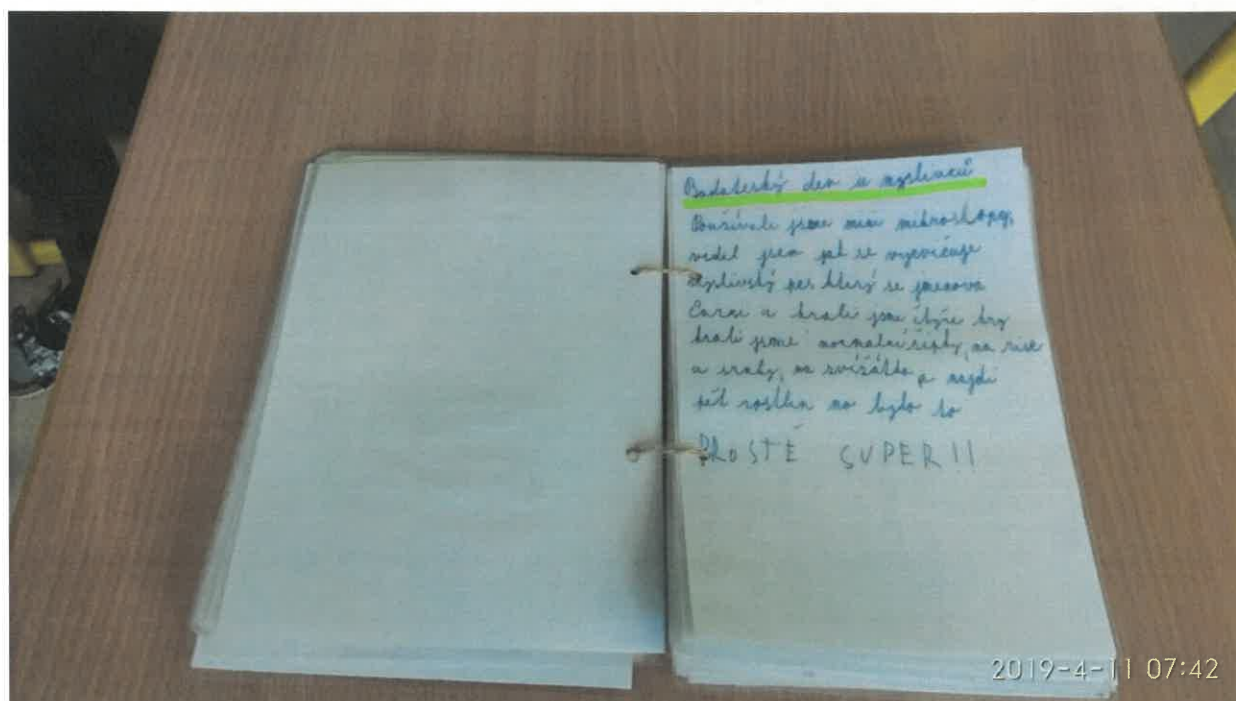 Badatelský den u myslivců
Používali jsme mini mikroskopy,
viděl jsem jak se vycvičuje
myslivský pes který se jmenova
a hrali jsme čtyře hry
hrali jsme normalní šipky, na
a na zvířátka a najdi
pět rostlin no bylo to
PROSTĚ SUPER!!
2019-4-11 07:42